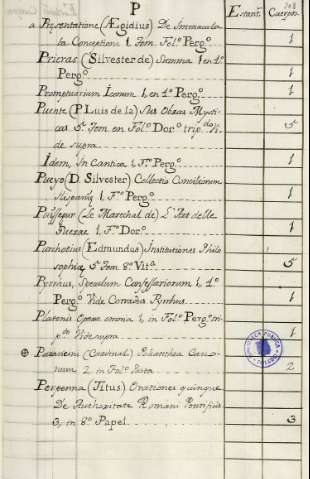 P
Estant.^e Cuerpos.
a Præsentatione (Ægidius) De Immacula
ta Conceptione 1. Tom. Fol.º Perg.º 1
Prieras (Silvester de) Summa 1. en 4.º
Perg.º 1
Promptuarium Iconum 1, en 4.º Perg.º 1
Puente (P. Luis de la) Sus Obras Mysti-
cas 5. Tom en Fol.º Dor.º trip.do Vi-
de supra 5
Idem, In Cantica 1, F.º Perg.º 1
Pueyo (D. Silvester) Collectio Conciliorum
Hispaniæ 1, F.º Perg.º 1
Puissegur (Le Marechal de) L'Art de la
Guerre 1, F.º Dor.º 1
Purchotius (Edmundus) Institutiones Philo
sophicæ 5. Tom 8.º Vit.ª 5
Pyrrhus, Speculum Confessariorum 1, 4.º
Perg.º Vide Corradus Pyrrhus 1
Platonis Opera omnia 1, in Fol.º Perg.º im-
Vide supra 1
(Cardinal) Bibliotheca
2 in Fol.º Pasta 2
(Titus) Orationes quinque
De Authoritate Romani Pontificis
3, in 8.º Papel 3